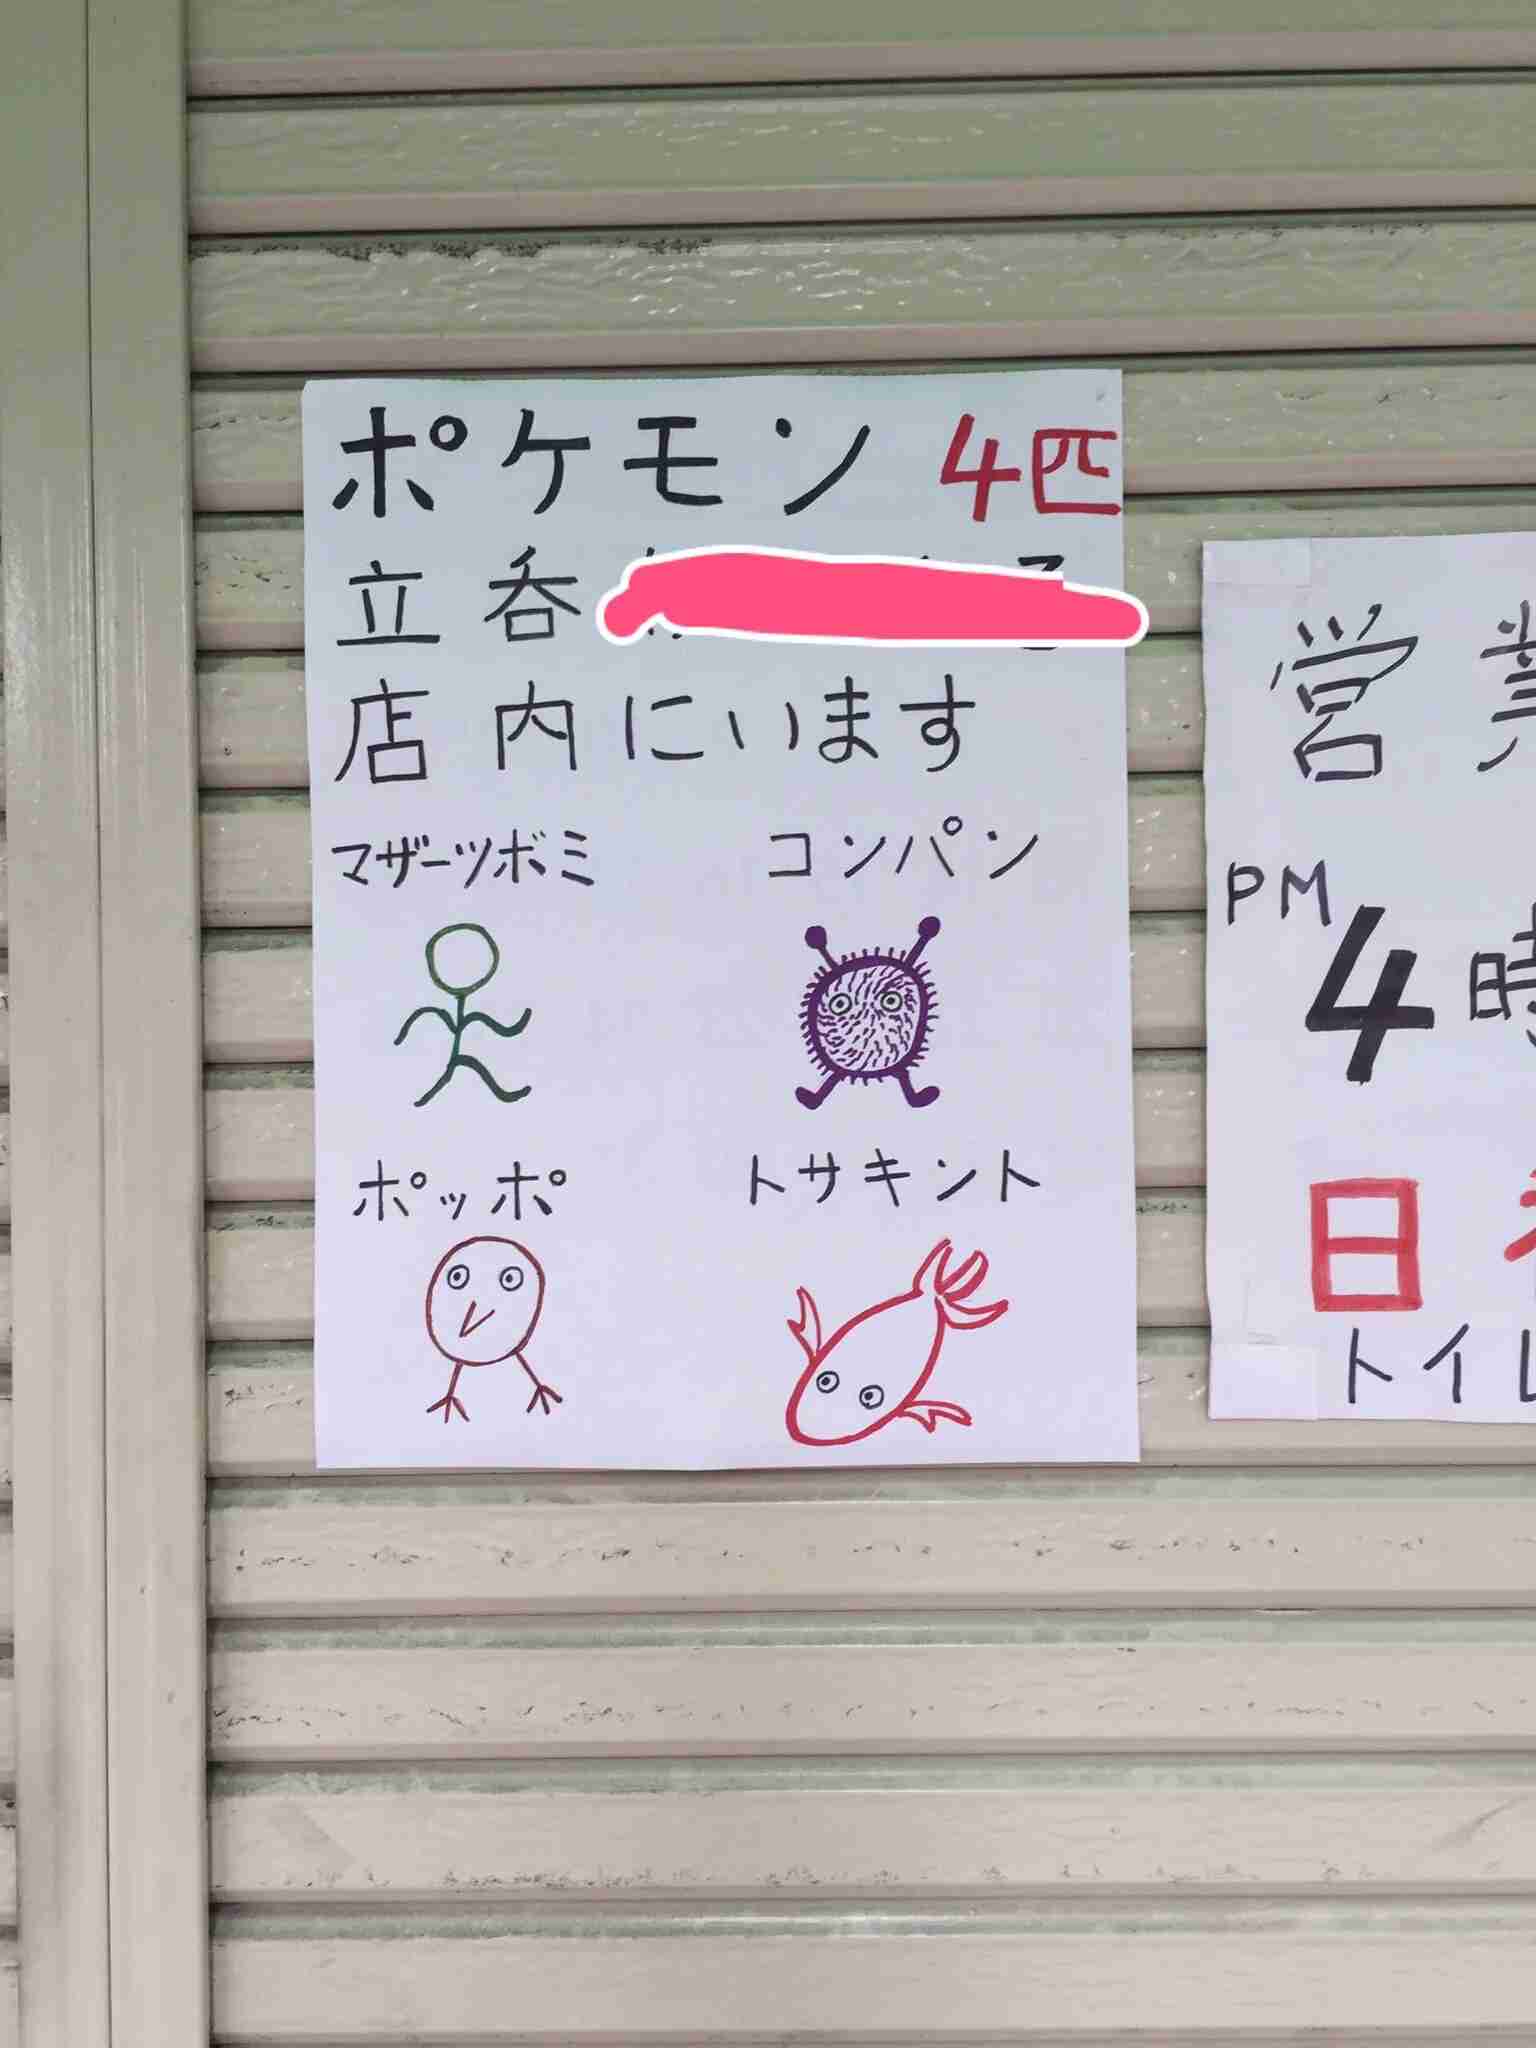 ポケモン 4匹
立呑
店内にいます
マザーツボミ コンパン
ポッポ トサキント
営業
PM
4時
日
トイレ